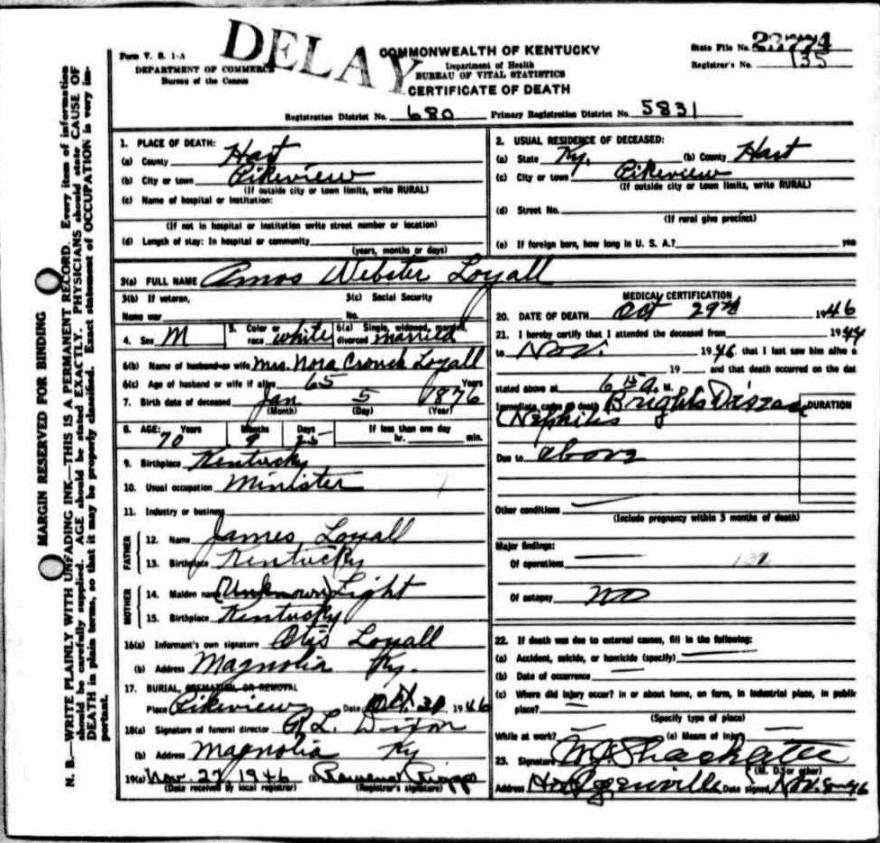 DELAY
Form V. S. 1-A
DEPARTMENT OF COMMERCE
Bureau of the Census
COMMONWEALTH OF KENTUCKY
Department of Health
BUREAU OF VITAL STATISTICS
CERTIFICATE OF DEATH
State File No. 23774
Registrar's No. 135
Registration District No. 680 Primary Registration District No. 5831
MARGIN RESERVED FOR BINDING
N. B.—WRITE PLAINLY WITH UNFADING INK—THIS IS A PERMANENT RECORD. Every item of information
should be carefully supplied. AGE should be stated EXACTLY. PHYSICIANS should state CAUSE OF
DEATH in plain terms, so that it may be properly classified. Exact statement of OCCUPATION is very im-
portant.
1. PLACE OF DEATH:
(a) County Hart
(b) City or town Pikeview
(If outside city or town limits, write RURAL)
(c) Name of hospital or institution:
(If not in hospital or institution write street number or location)
(d) Length of stay: In hospital or community
(years, months or days)
2. USUAL RESIDENCE OF DECEASED:
(a) State Ky. (b) County Hart
(c) City or town Pikeview
(If outside city or town limits, write RURAL)
(d) Street No.
(If rural give precinct)
(e) If foreign born, how long in U. S. A.? yea
3(a) FULL NAME Amos Webster Loyall
3(b) If veteran,
Name war
3(c) Social Security
No.
4. Sex M 5. Color or race white 6(a) Single, widowed, married, divorced married
6(b) Name of husband or wife Mrs. Nora Crouch Loyall
6(c) Age of husband or wife if alive 65 Years
7. Birth date of deceased Jan 5 1876
(Month) (Day) (Year)
8. AGE: Years Months Days If less than one day
70 9 25 hr. min.
9. Birthplace Kentucky
10. Usual occupation Minister
11. Industry or business
FATHER
12. Name James Loyall
13. Birthplace Kentucky
MOTHER
14. Maiden name (Unknown) Light
15. Birthplace Kentucky
16(a) Informant's own signature Otis Loyall
(b) Address Magnolia Ky.
17. BURIAL, CREMATION, OR REMOVAL
Place Pikeview Date Oct. 30 1946
18(a) Signature of funeral director R L. Dixon
(b) Address Magnolia Ky
19(a) Nov. 27 1946 (b)
(Date received by local registrar) (Registrar's signature)
MEDICAL CERTIFICATION
20. DATE OF DEATH Oct 29th 1946
21. I hereby certify that I attended the deceased from 1944
to Nov. 1946 that I last saw him alive o
19 and that death occurred on the dat
stated above at 6 15 a. M.
Immediate cause of death Brights Disease DURATION
Nephitis
Due to above
Other conditions
(Include pregnancy within 3 months of death)
Major findings:
Of operations
Of autopsy NO
22. If death was due to external causes, fill in the following:
(a) Accident, suicide, or homicide (specify)
(b) Date of occurrence
(c) Where did injury occur? in or about home, on farm, in industrial place, in public
place?
(Specify type of place)
While at work? (e) Means of injury
23. Signature
(M. D. or other)
Address Hodgenville Date signed